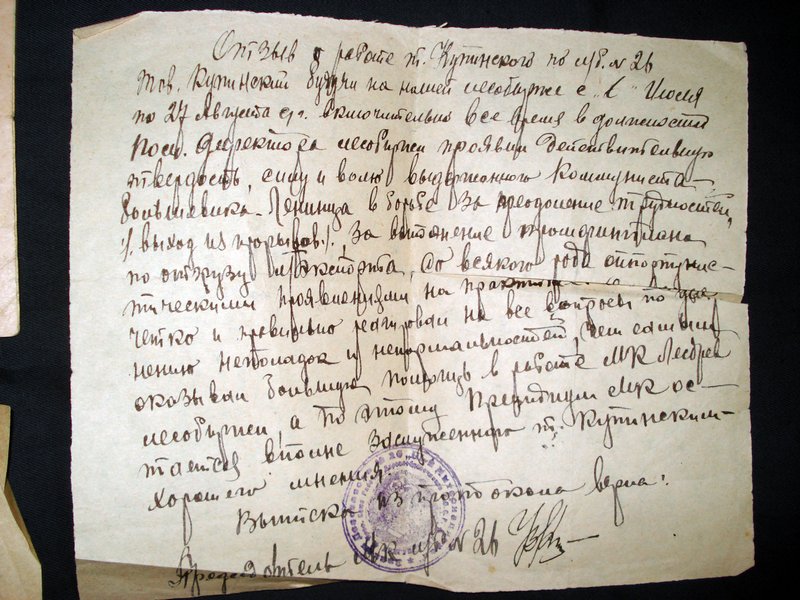 Отзыв о работе т. Купинского по
Тов. Купинский будучи на нашей лесобирже с "1" Июля
по 27 Августа с/г. включительно все время в должности
Пом. Директора лесобиржи проявил действительную
твердость, силу и волю выдержанного Коммуниста
Большевика-Ленинца в борьбе за преодоление трудностей,
/выход из прорывов/. За выполнение промфинплана
по отгрузу экспорта, со всякого рода оппортунис-
тическими проявлениями на практике
четко и правильно реагировал на все вопросы по
нению неполадок и ненормальностей, чем самым
оказывал большую помощь в работе МК
лесобиржи, а по этому Президиум МК ос-
тается вполне заслуженного т. Купинским
хорошего мнения.
Выписка из протокола верна:
Председатель МК № 26